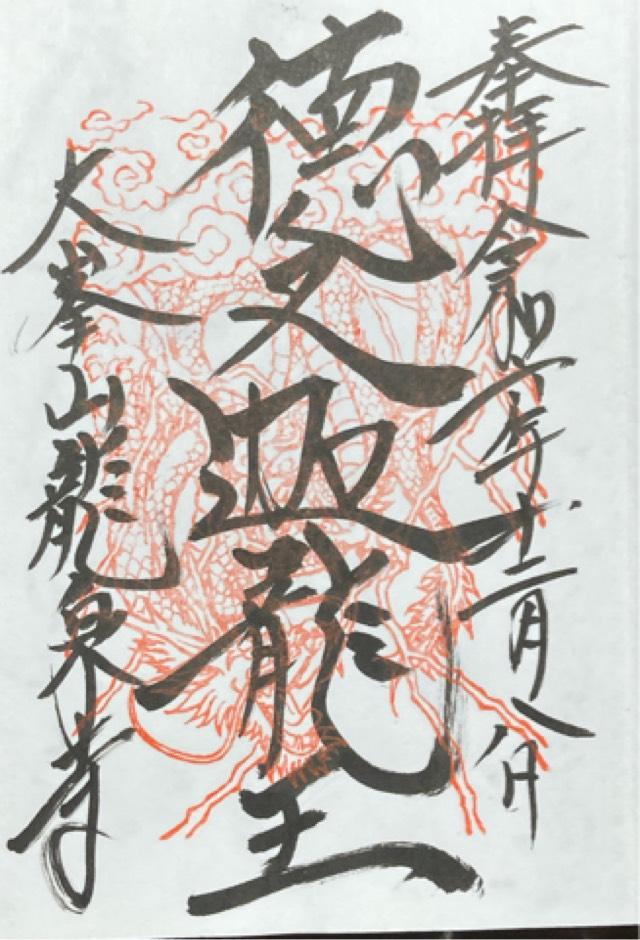 奉拝 令和六年十二月八日
徳叉迦龍王
大峯山龍泉寺